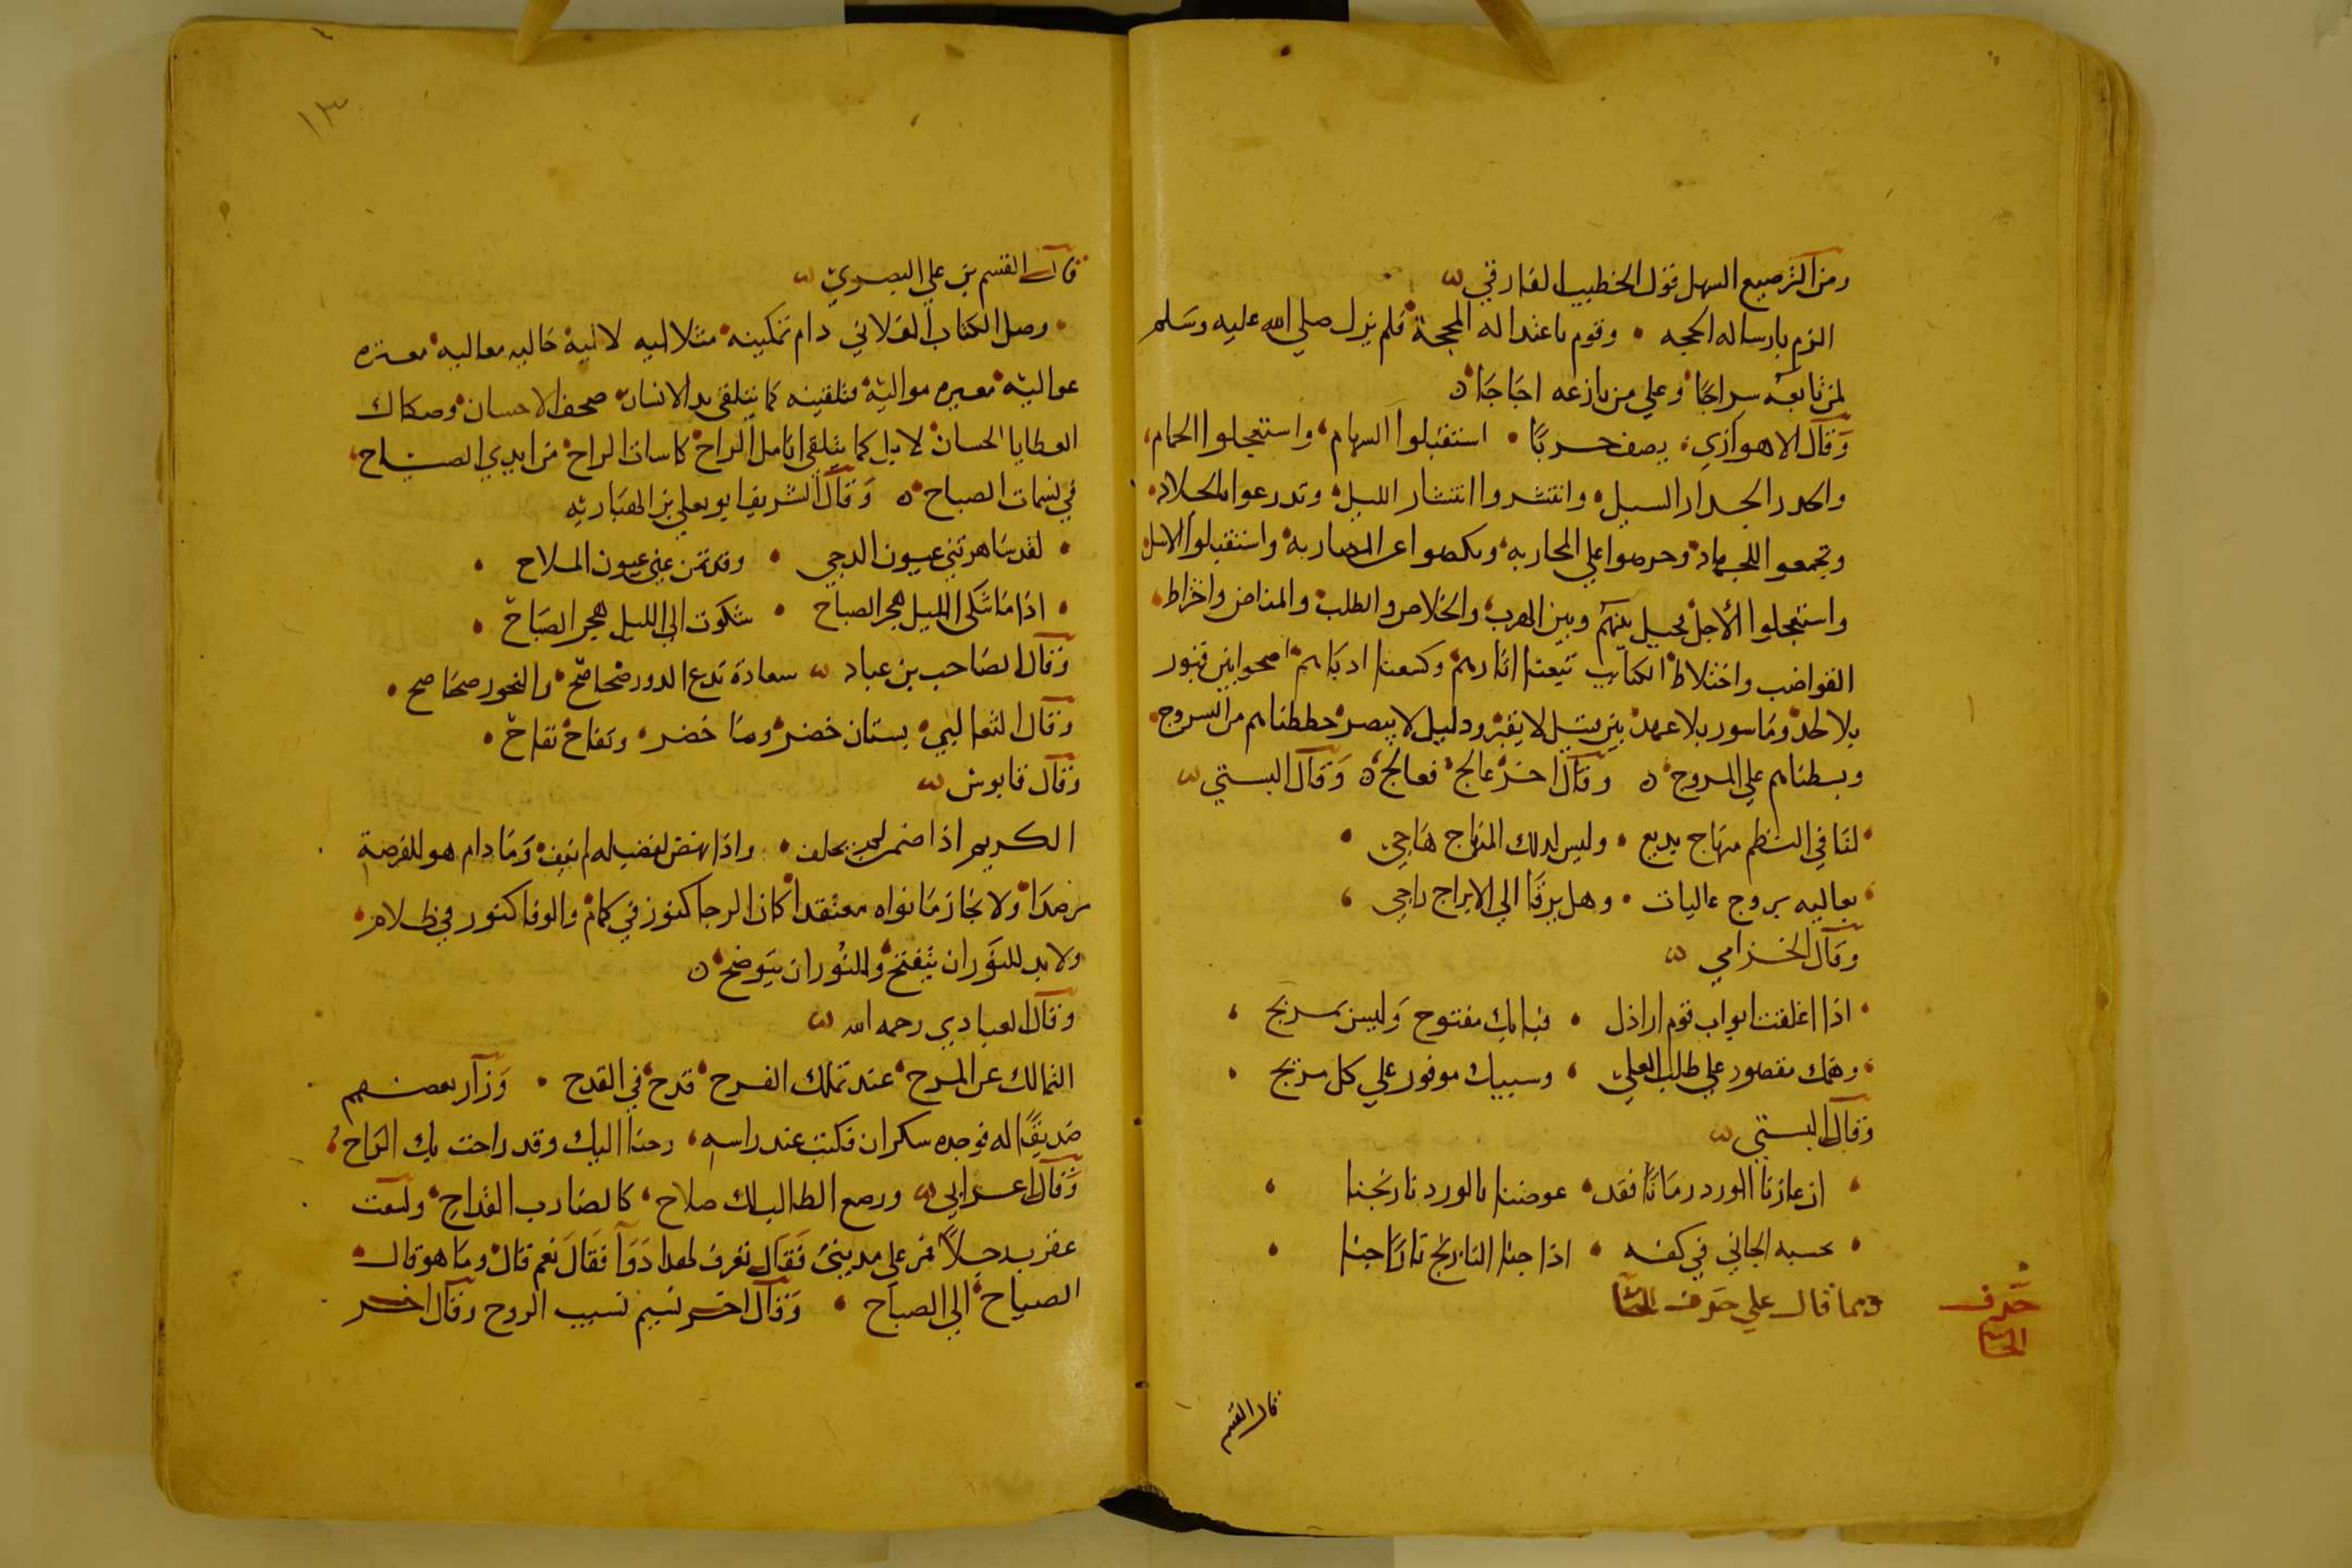 ومن الترصيع السهل قول الخطيب الفارقي
الزم بارساله الحجه • وقوم باعتداله المحجة فلم يزل صلي الله عليه وسلم
لمن تابعه سراجًا وعلي من نازعه اجاجًا ه
وقال الاهوازي يصف حربًا • استقبلوا السهام، واستعجلوا الحمام،
وانحدر انحدار السيل، وانتشروا انتشار الليل، وتدرعوا للجلاد،
وتجمعوا للجهاد وحرصوا علي المحاربه ونكصوا عن المضاربه واستقبلوا الاسل
واستعجلوا الأجل فحيل بينهم وبين الهرب والخلاص والطلب والمناص واخراط
القواضب واختلاط الكتايب تبعنا اثارهم وكسعنا ادبارهم اصحوا بين مقبور
بلا لحد وماسور بلا عهد بين قتيل لا يقبر ودليل لا يبصر حططناهم من السروج
وبسطناهم علي المروج ه وقال اخر عالج فعالج ه وقال البستي
لنا في النظم منهاج بديع • وليس لذلك المنهاج هاجي •
معاليه بروج عاليات • وهل يرقا الي الابراج راجي
وقال الخزامي
اذا اغلقت ابواب قوم اراذل • فبابك مفتوح وليس بمرتج
وهمك مقصور علي طلب العلي • وسيبك موفور علي كل مرتج
وقال البستي
ان عازنا الورد زمانًا فقد • عوضنا بالورد نارنجنا
يحسبه الجاني في كفه • اذا جنا النارنج نارًا جنا
ومما قال علي حرف الحا
حرف
الحا
قال القسم
١٣
قال القسم بن علي البصري
وصل الكتاب الفلاني دام تمكينه مثلا اليه لاليه خاليه معاليه معتزه
عواليه معيره مواليه فتلقيته كما يتلقي يد الانسان صحف الاحسان وصكاك
العطايا الحسان لا بل كما يتلقي انامل الراح كاسات الراح من ايدي الصباح
في نسمات الصباح ه وقال الشريف ابو يعلي بن الهباريه
لقد ساهرتني عيون الدجي • وقد نمن عني عيون الملاح •
اذا ما شكي الليل هجر الصباح • شكوت الي الليل هجر الصباح •
وقال الصاحب بن عباد سعادة تدع الدور ضحاضح والنحور صحاصح •
وقال الثعالبي بستان خضر وما خضر • وتفاح تفاح •
وقال قابوس
الكريم اذا ضمن لم يخلف • واذا نهض لفضيله لم يقف وما دام هو للفرصة
مرصدًا ولا نجاز ما نواه معتقدا كان الرجا كنور في كمام والوفا كنور في ظلام
ولا بد للنور ان يتفتح والنور ان يتوضح ه
وقال العبادي رحمه الله
التمالك عن المرح عند تملك الفرح قدح في القدح • وزار بعضهم
صديقًا له فوجده سكران فكتب عند راسه، رحنا اليك وقد راحت بك الراح
وقال اعرابي ورصع الطالب لك صلاح، كالضارب القداح ولسعت
عقرب رجلاً فمر علي مديني فقال تعرف لهذا دوا فقال نعم قال وما هو قال
الصياح الي الصباح • وقال اخر نسيم نسيب الروح وقال اخر